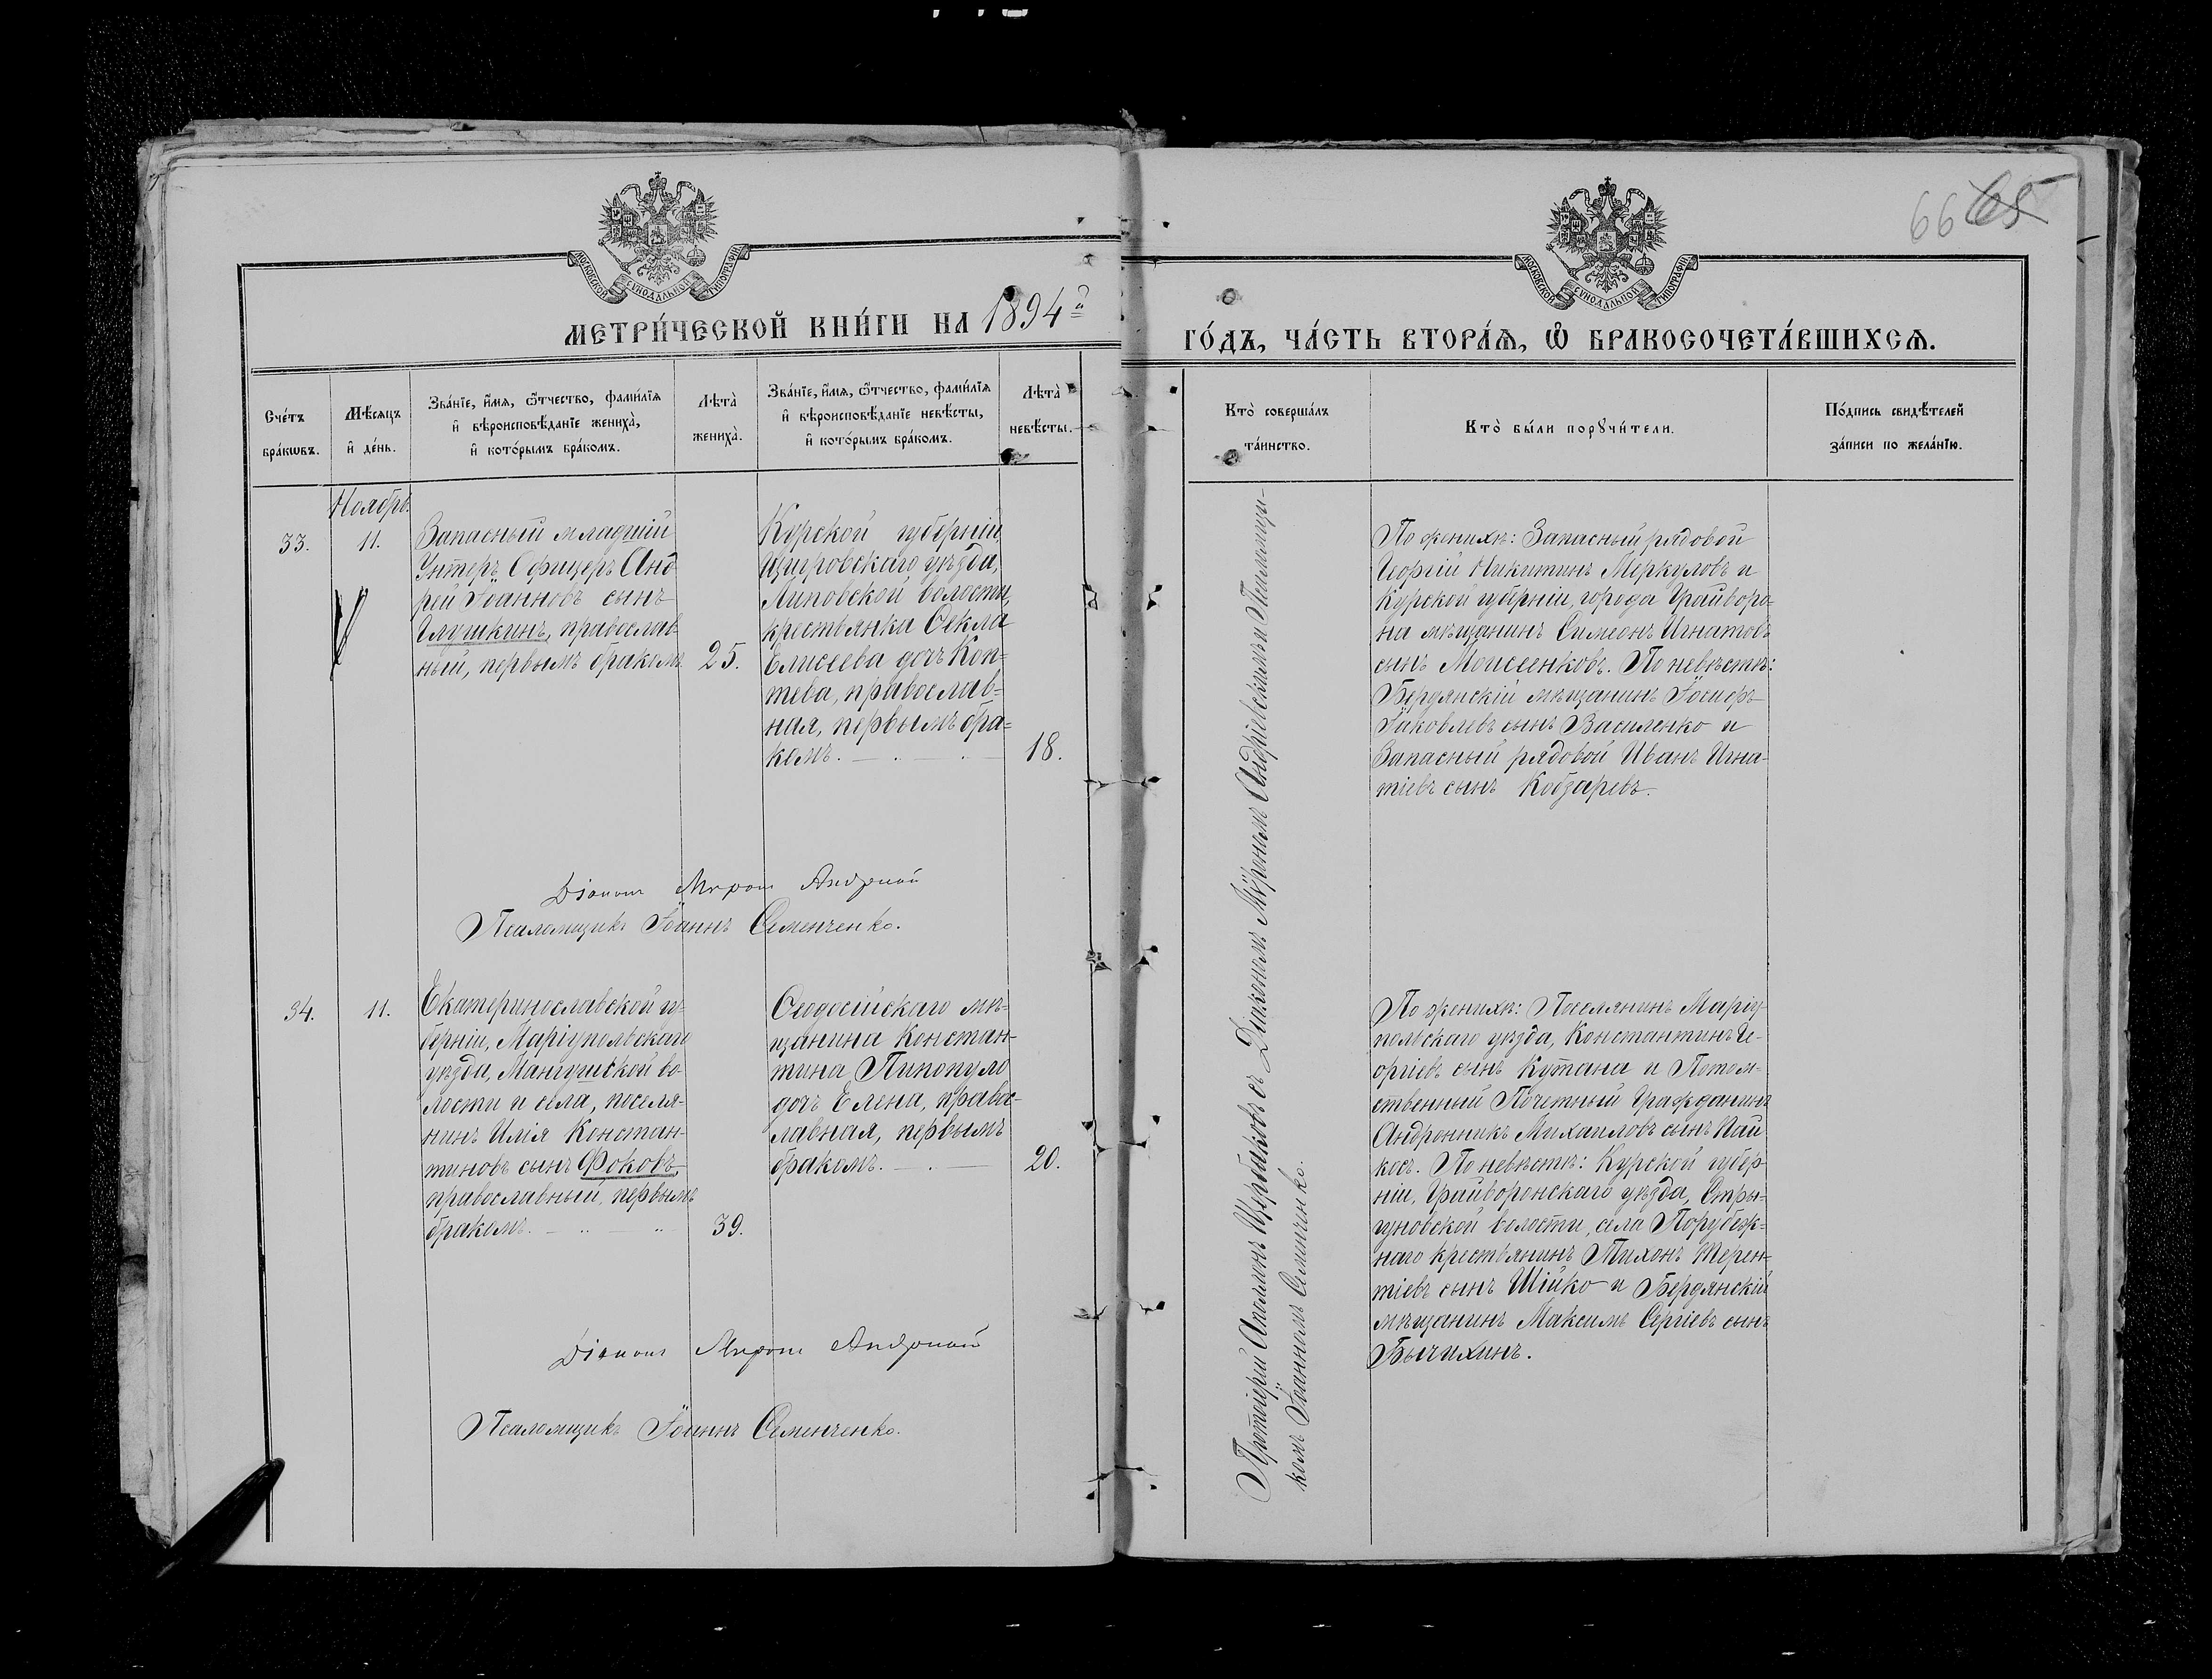 66 65
МОСКОВСКОЙ СѴНОДАЛЬНОЙ ТИПОГРАФІИ
МОСКОВСКОЙ СѴНОДАЛЬНОЙ ТИПОГРАФІИ
МЕТРИ́ЧЕСКОЙ КНИ́ГИ НА 1894й
ГО́ДЪ, ЧА́СТЬ ВТОРА́Ѧ, Ѽ БРАКОСОЧЕТА́ВШИХСѦ.
Сче́тъ бра́кѡвъ.
Мѣ́сѧцъ и҆ де́нь.
Зва́нїе, и҆́мѧ, ѻ҆́тчество, фами́лїѧ и҆ вѣроисповѣ́данїе жениха̀, и҆ кото́рымъ бра́комъ.
Лѣта̀ жениха̀.
Зва́нїе, и҆́мѧ, ѻ҆́тчество, фами́лїѧ и҆ вѣроисповѣ́данїе невѣ́сты, и҆ кото́рымъ бра́комъ.
Лѣта̀ невѣ́сты.
Кто̀ соверша́лъ та́инство.
Кто̀ бы́ли порꙋчи́тели.
По́дпись свидѣ́телей за́писи по жела́нїю.
Ноябрь.
33.
11.
Запасный младшій
Унтеръ Офицеръ Анд
рей Іоанновъ сынъ
Глушкинъ, православ-
ный, первымъ бракомъ
25.
Курской губерніи,
Щигровскаго уѣзда,
Липовской волости,
крестьянка Ѳекла
Елисеева дочь Коп-
тева, православ-
ная, первымъ бра-
комъ.
18.
По женихѣ: Запасный рядовой
Георгій Никитинъ Меркуловъ и
Курской губерніи, города Грайворо-
на мѣщанинъ Симеонъ Игнатовъ
сынъ Моисеенковъ. По невѣстѣ:
Бердянскій мѣщанинъ Іосифъ
Іаковлевъ сынъ Василенко и
Запасный рядовой Иванъ Игна-
тіевъ сынъ Кобзаревъ.
Діаконъ Миронъ
Псаломщикъ Іоаннъ Семенченко.
34.
11.
Екатеринославской гу-
берніи, Маріупольскаго
уѣзда, Мангушской во-
лости и села, поселя-
нинъ Илія Констан-
тиновъ сынъ Фоковъ,
православный, первымъ
бракомъ.
39.
Ѳеодосійскаго мѣ-
щанина Констан-
тина Пинопуло
дочь Елена, правос-
лавная, первымъ
бракомъ.
20.
По женихѣ: Поселянинъ Маріу-
польскаго уѣзда, Константинъ Ге-
оргіевъ сынъ Кутана и Потом-
ственный Почетный Гражданинъ
Андронникъ Михаиловъ сынъ
По невѣстѣ: Курской губер-
ніи, Грайворонскаго уѣзда, Стри-
гуновской волости, села Порубеж-
наго крестьянинъ Тихонъ Терен-
тіевъ сынъ Шійко и Бердянскій
мѣщанинъ Максимъ Сергіевъ сынъ
Бычихинъ.
Діаконъ Миронъ
Псаломщикъ Іоаннъ Семенченко.
Протоіерей Щербаковъ съ Діакономъ Мѵрономъ Андріевскимъ и Псаломщи-
комъ Іоанномъ Семенченко.